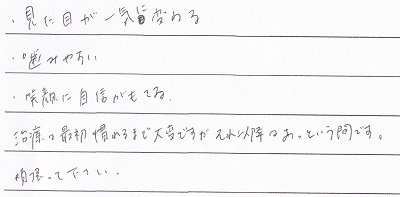 ・見た目が一気に変わる
・噛みやすい
・笑顔に自信がもてる.
治療は最初慣れるまで大変ですがそれ以降はあっという間です。
頑張って下さい.